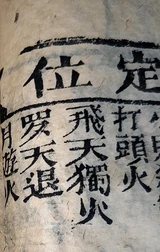 定位
打頭火
飛天獨火
罗天退
月遊火